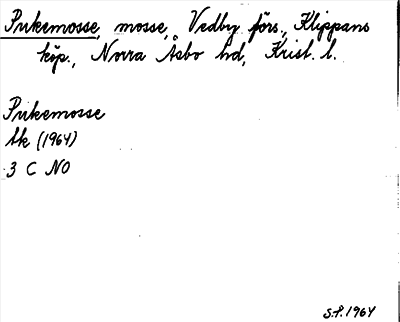 Pukemosse, mosse, Vedby förs., Klippans
köp., Norra Åsbo hd, Krist. l.
Pukemosse
tk (1964)
3 C NO
S.P. 1964